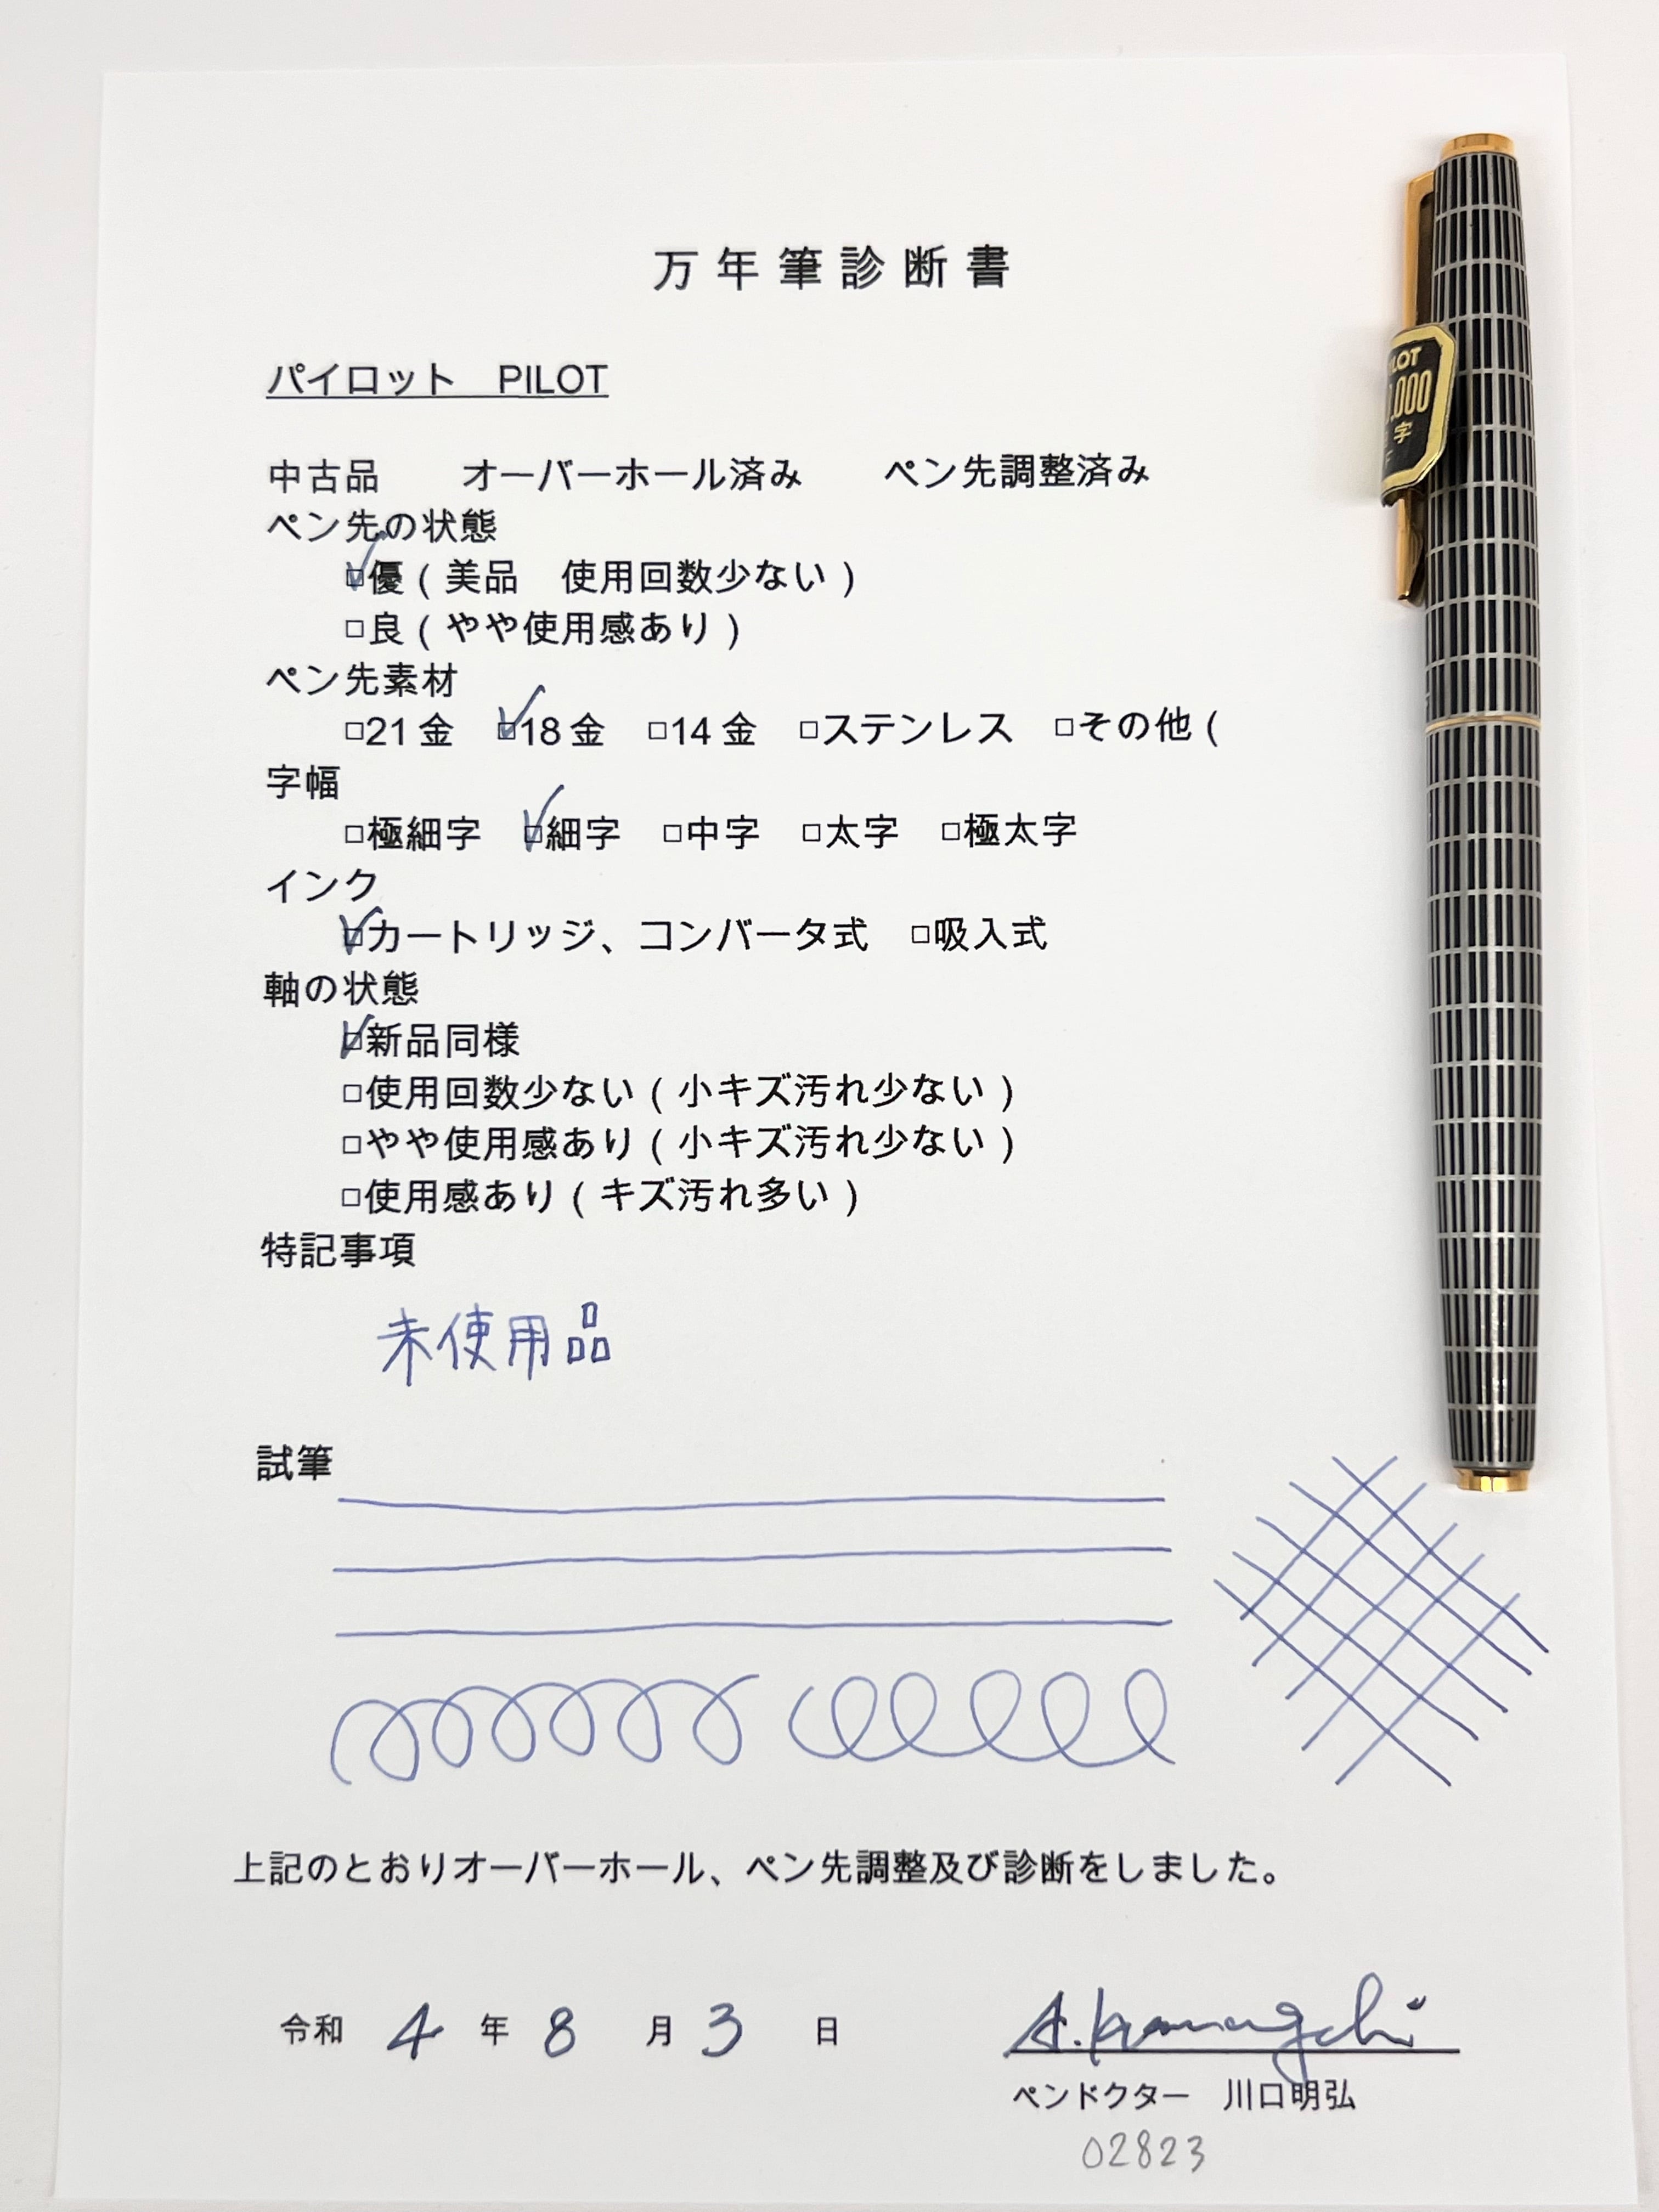 万年筆診断書
パイロット　PILOT
中古品　　オーバーホール済み　　ペン先調整済み
ペン先の状態
☑優（美品　使用回数少ない）
□良（やや使用感あり）
ペン先素材
□21金　☑18金　□14金　□ステンレス　□その他（
字幅
□極細字　☑細字　□中字　□太字　□極太字
インク
☑カートリッジ、コンバータ式　□吸入式
軸の状態
☑新品同様
□使用回数少ない（小キズ汚れ少ない）
□やや使用感あり（小キズ汚れ少ない）
□使用感あり（キズ汚れ多い）
特記事項
未使用品
試筆
上記のとおりオーバーホール、ペン先調整及び診断をしました。
令和 4 年 8 月 3 日
A. Kawaguchi
ペンドクター　川口明弘
02823
字